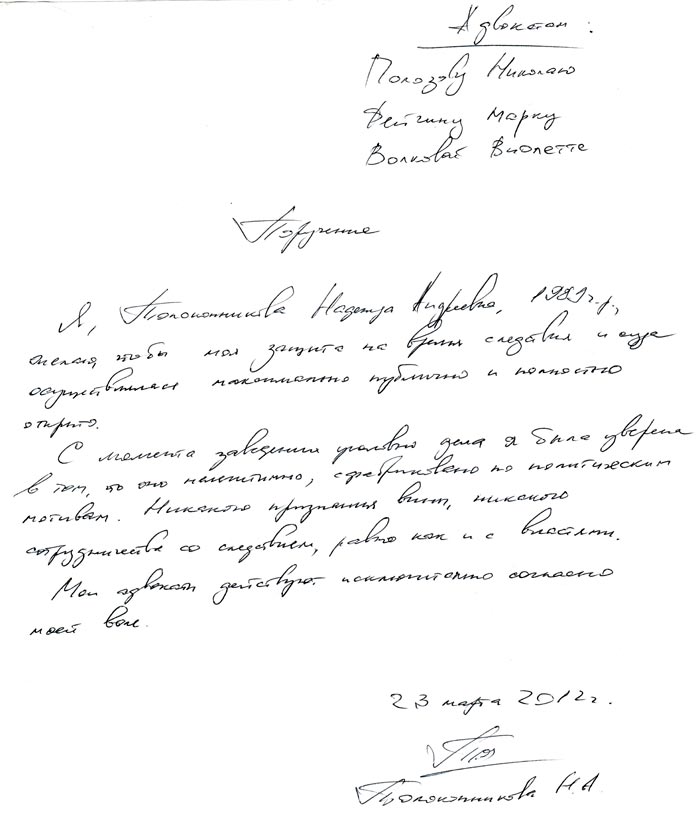 Адвокатам:
Полозову Николаю
Фейгину Марку
Волковой Виолетте
Поручение
Я, Толоконникова Надежда Андреевна, 1989 г.р.,
желаю, чтобы моя защита на время следствия и суда
осуществлялась максимально публично и полностью
открыто.
С момента заведения уголовно дела я была уверена
в том, что оно нелегитимно, сфабриковано по политическим
мотивам. Никакого признания вины, никакого
сотрудничества со следствием, равно как и с властями.
Мои адвокаты действуют исключительно согласно
моей воле.
23 марта 2012г.
Толоконникова Н.А.